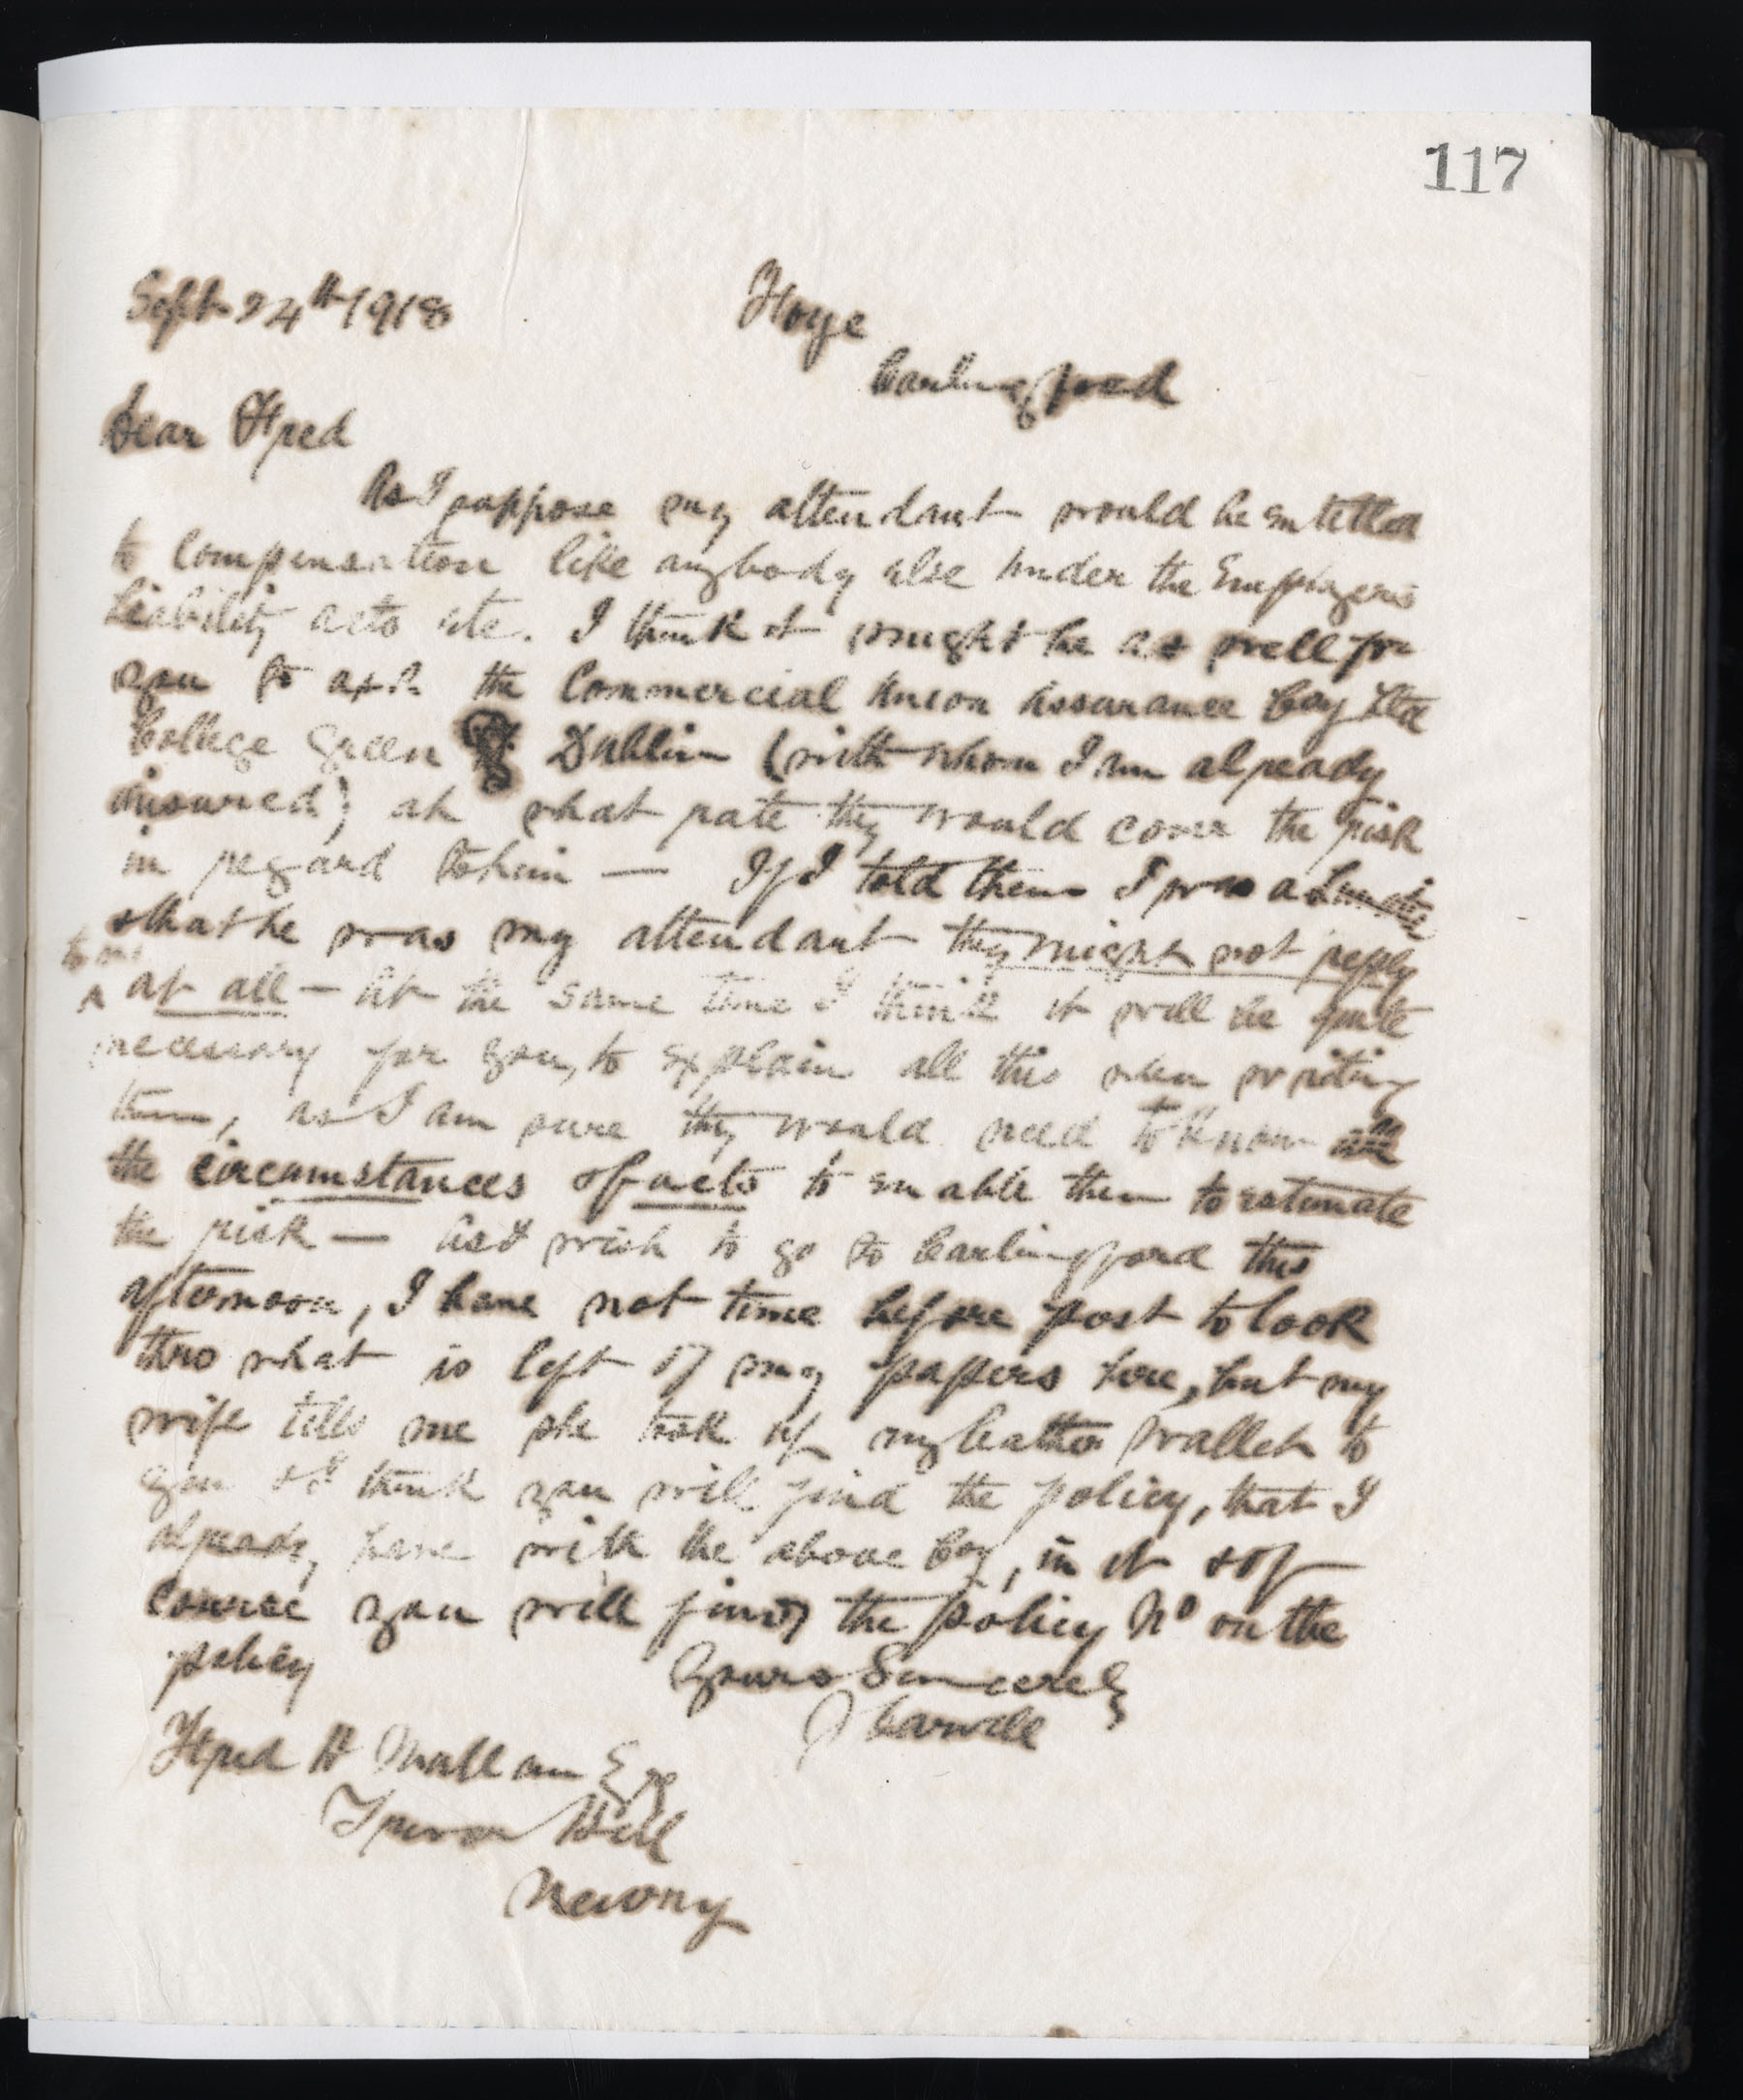 117
Sept 24th 1918
Foye
Carlingford
Dear Fred
As I suppose my attendant would be entitled
to compensation like anybody else under the Employers
Liability acts etc. I think it might be as well for
you to ask the Commercial Union Assurance Coy Ltd
College Green Dublin (with whom I am already
insured) at what rate they would cover the risk
in regard to him — If I told them I was a Lunatic
& that he was my attendant they might not reply
to me
at all — At the same time I think it will be quite
necessary for you, to explain all this when writing
them, as I am sure they would need to know
the circumstances & facts to enable them to estimate
the risk — As I wish to go to Carlingford this
afternoon, I have not time before post to look
thro what is left of my papers here, but my
wife tells me she took up my leather wallet to
you & I think you will find the policy, that I
already have with the above Coy, in it & of
course you will find the policy No on the
policy
Yours Sincerely
J Carvill
Fred H Mallam Esq
Trevor Hill
Newry